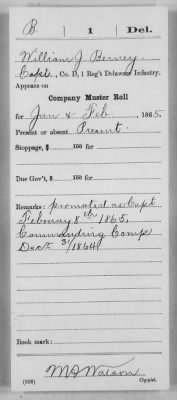 B. 1 Del.
William J. Berney
Capt., Co. D, 1 Reg't Delaware Infantry.
Appears on
Company Muster Roll
for Jan & Feb, 1865.
Present or absent Present.
Stoppage, $ 100 for
Due Gov't, $ 100 for
Remarks: promoted as Capt
Febouray 8th 1865,
Commandring Comp
Dect 31/1864
Book mark:
M D Watson
(358) Copyist.